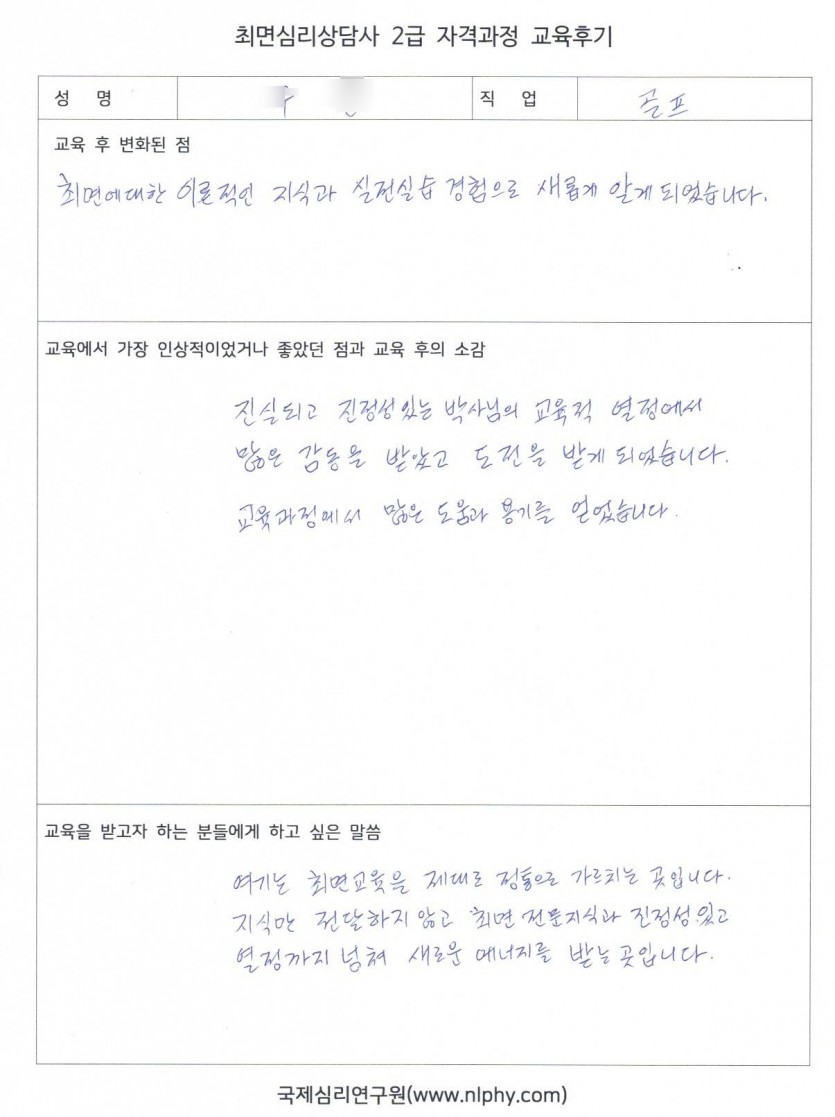 최면심리상담사 2급 자격과정 교육후기
성 명
직 업 골프
교육 후 변화된 점
최면에대한 이론적인 지식과 실전실습 경험으로 새롭게 알게 되었습니다.
교육에서 가장 인상적이었거나 좋았던 점과 교육 후의 소감
진실되고 진정성있는 박사님의 교육적 열정에서
많은 감동을 받았고 도전을 받게 되었습니다.
교육과정에서 많은 도움과 용기를 얻었습니다.
교육을 받고자 하는 분들에게 하고 싶은 말씀
여기는 최면교육을 제대로 정통으로 가르치는 곳입니다.
지식만 전달하지 않고 최면 전문지식과 진정성있고
열정까지 넘쳐 새로운 에너지를 받는 곳입니다.
국제심리연구원(www.nlphy.com)